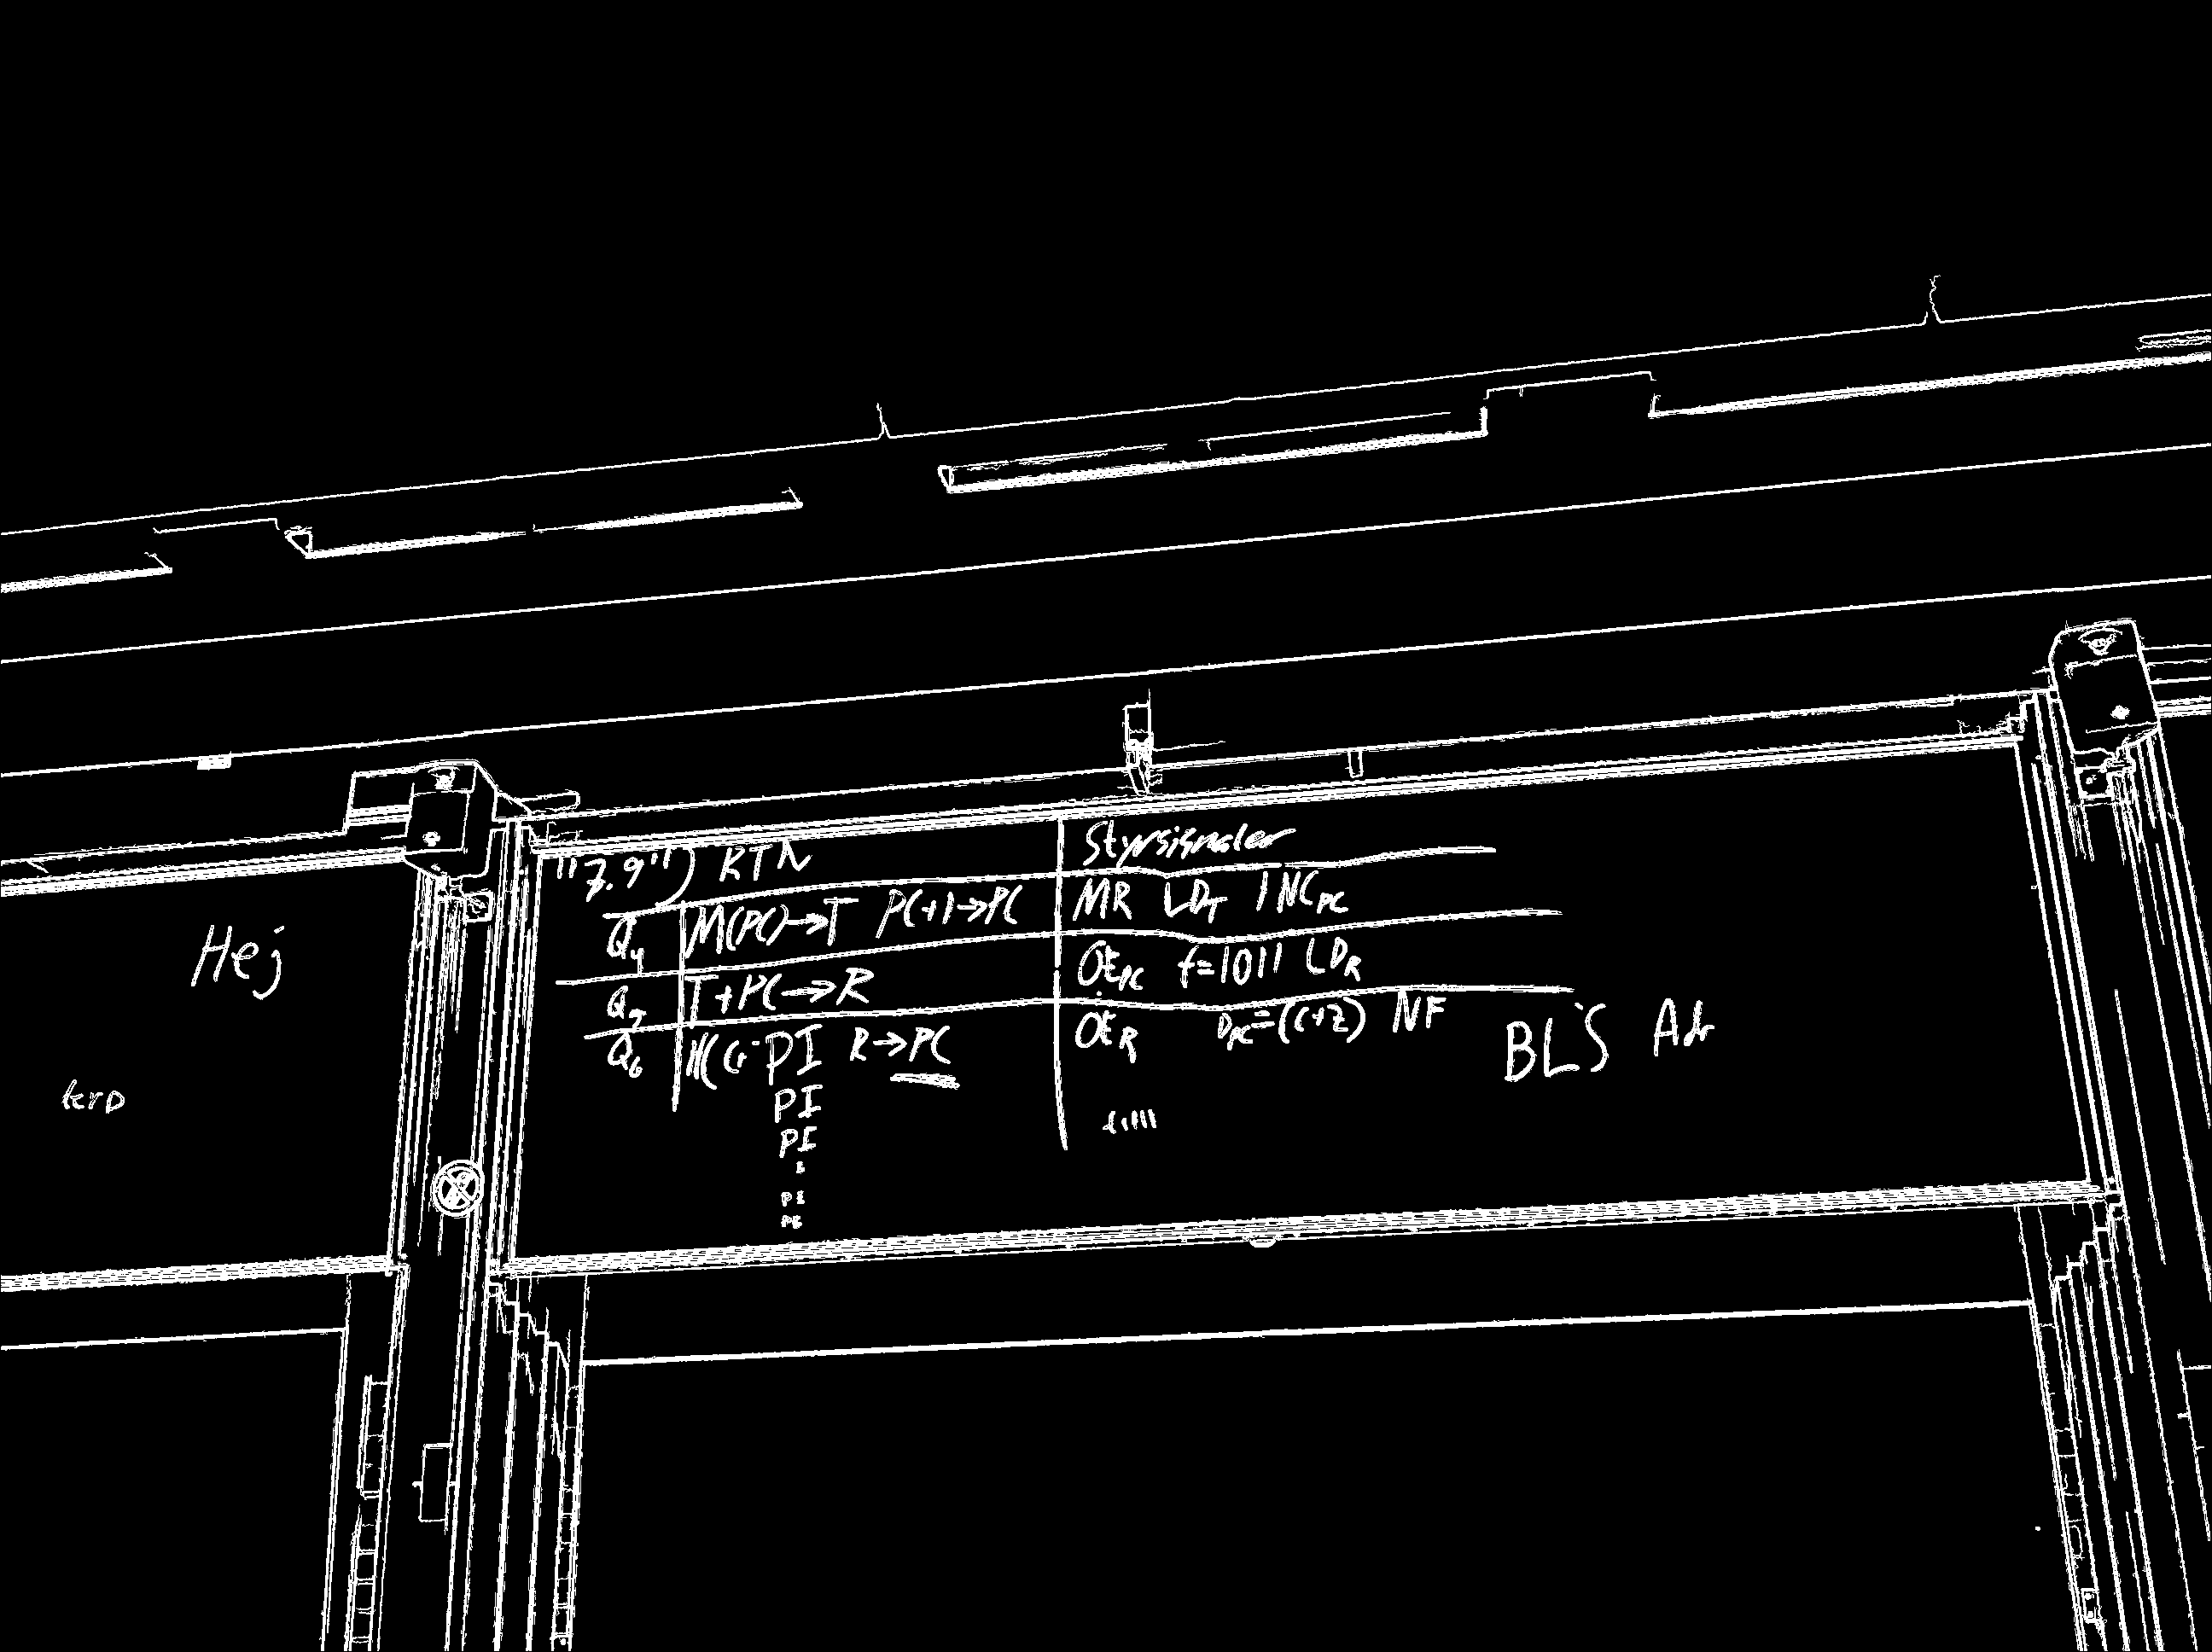 Hej
"7.9") RTN Styrsignaler
Q4 M(PC)→T PC+1→PC MR LDT INCPC
Q5 T+PC→R OEPC f=1011 LDR
Q6 PI R→PC OER DPC=(C+Z) NF
BLS Adr
PI
PI
PI